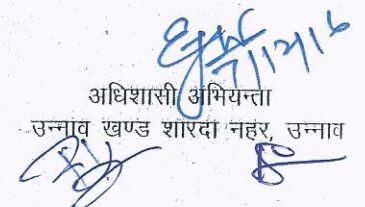 7/12/16
अधिशासी अभियन्ता
उन्नाव खण्ड शारदा नहर, उन्नाव